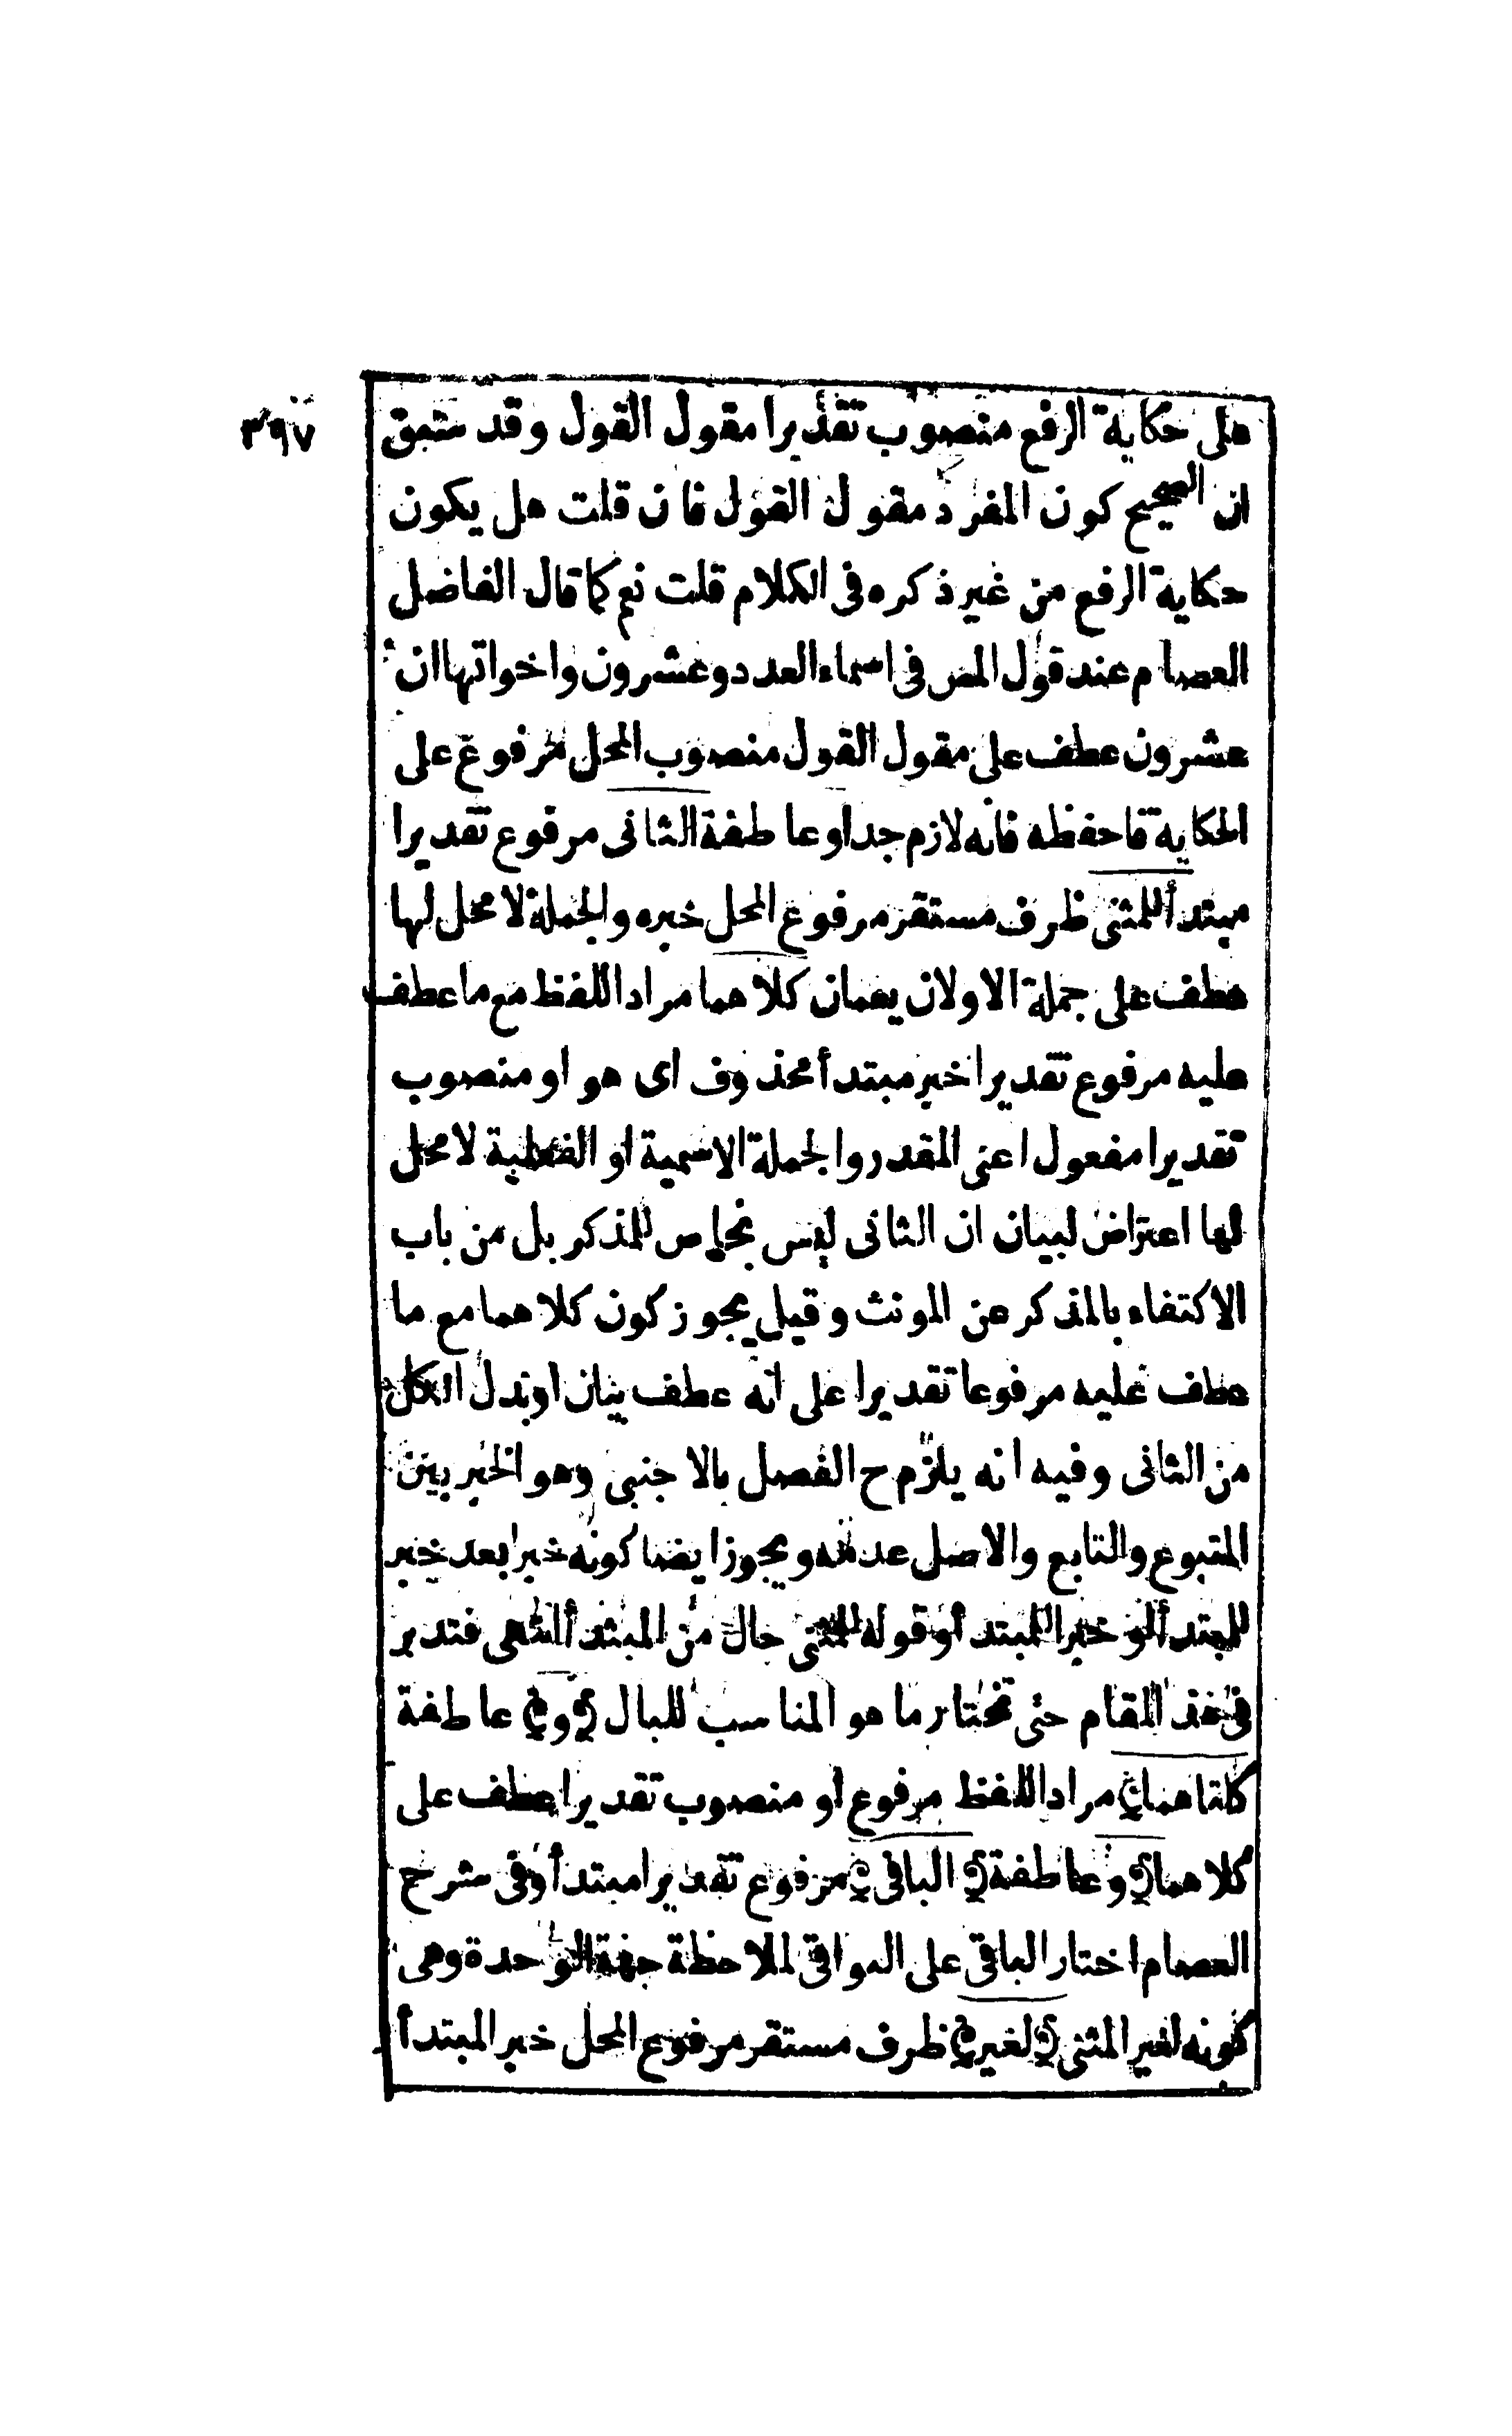 ٣٩٧
على حكاية الرفع منصوب تقديرا مقول القول وقد سبق
ان الصحيح كون المفرد مقول القول فان قلت هل يكون
حكاية الرفع من غير ذكره فى الكلام قلت نعم كما قال الفاضل
العصام عند قول المص فى اسماء العدد وعشرون واخواتها ان
عشرون عطف على مقول القول منصوب المحل مرفوع على
الحكاية فاحفظه فانه لازم جدا وعاطفة الثانى مرفوع تقديرا
مبتدأ للمثنى ظرف مستقر مرفوع المحل خبره والجملة لا محل لها
عطف على جملة الاولان يعمان كلاهما مراد اللفظ مع ما عطف
عليه مرفوع تقديرا خبر مبتدأ محذوف اى هو او منصوب
تقديرا مفعول اعنى المقدر والجملة الاسمية او الفعلية لا محل
لها اعتراض لبيان ان الثانى ليس بخاص للمذكر بل من باب
الاكتفاء بالمذكر عن المونث وقيل يجوز كون كلاهما مع ما
عطف عليه مرفوعا تقديرا على انه عطف بيان او بدل الكل
من الثانى وفيه انه يلزم ح الفصل بالاجنبى وهو الخبر بين
المتبوع والتابع والاصل عدمه ويجوز ايضا كونه خبرا بعد خبر
للمبتدأ او خبرا للمبتدأ وقوله للمثنى حال من المبتدأ انتهى فتدبر
فى هذا المقام حتى تختار ما هو المناسب للبال ﴿و﴾ عاطفة
﴿كلتاهما﴾ مراد اللفظ مرفوع او منصوب تقديرا عطف على
كلاهما ﴿و﴾ عاطفة ﴿الباقى﴾ مرفوع تقديرا مبتدأ وفى شرح
العصام اختار الباقى على البواقى لملاحظة جهة الوحدة وهى
كونه لغير المثنى ﴿لغير﴾ ظرف مستقر مرفوع المحل خبر المبتدأ